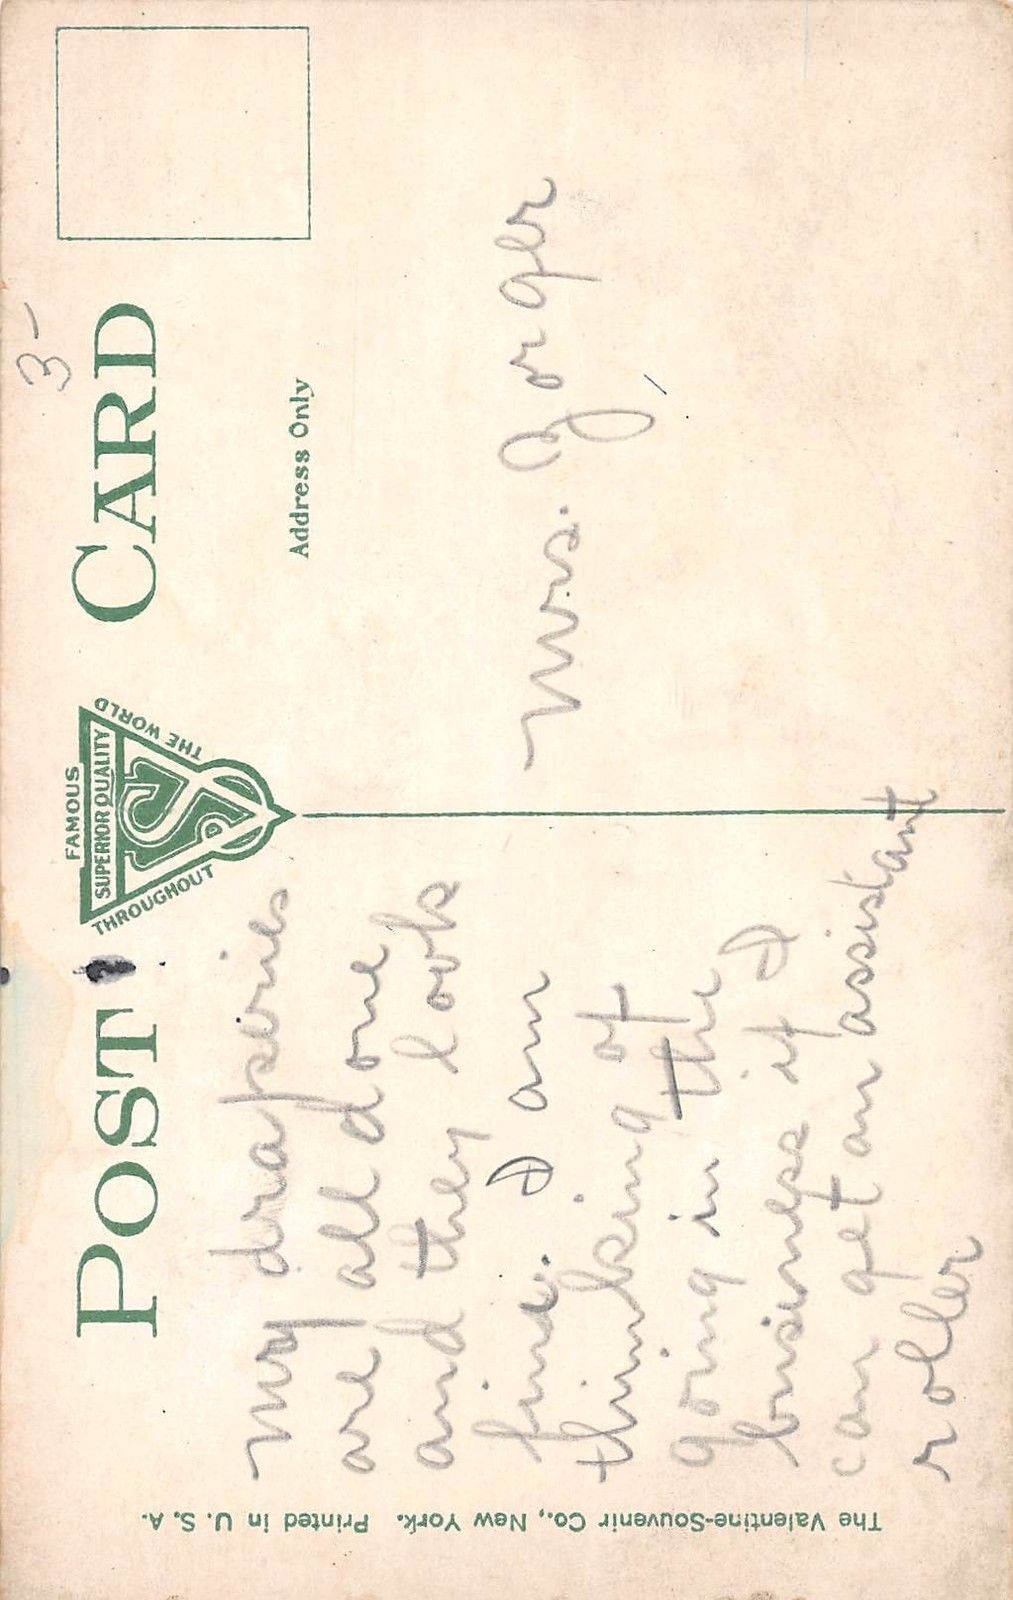 3-
POST CARD
FAMOUS
SUPERIOR QUALITY
THROUGHOUT
THE WORLD
VS Co
Address Only
My draperies
are all done
and they look
fine. I am
thinking of
going in the
business if I
can get an assistant
roller
Mrs. Zorger
The Valentine-Souvenir Co., New York. Printed in U. S. A.